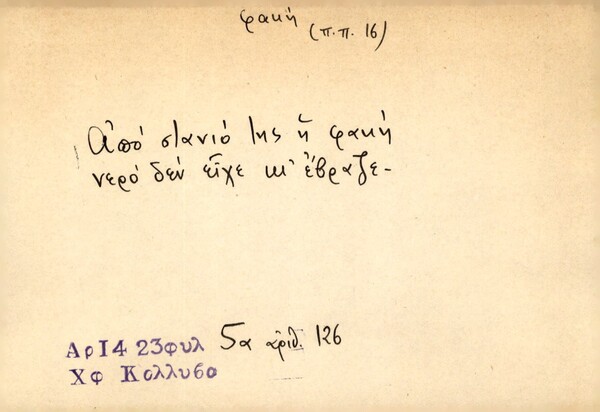 φακή (π.π. 16)
Ἀπό στανιό της ἡ φακή
νερό δέν εἶχε κι' ἔβραζε-
Αρ14 23φυλ 5α ἀριθ. 126
Χφ Κολλυβα